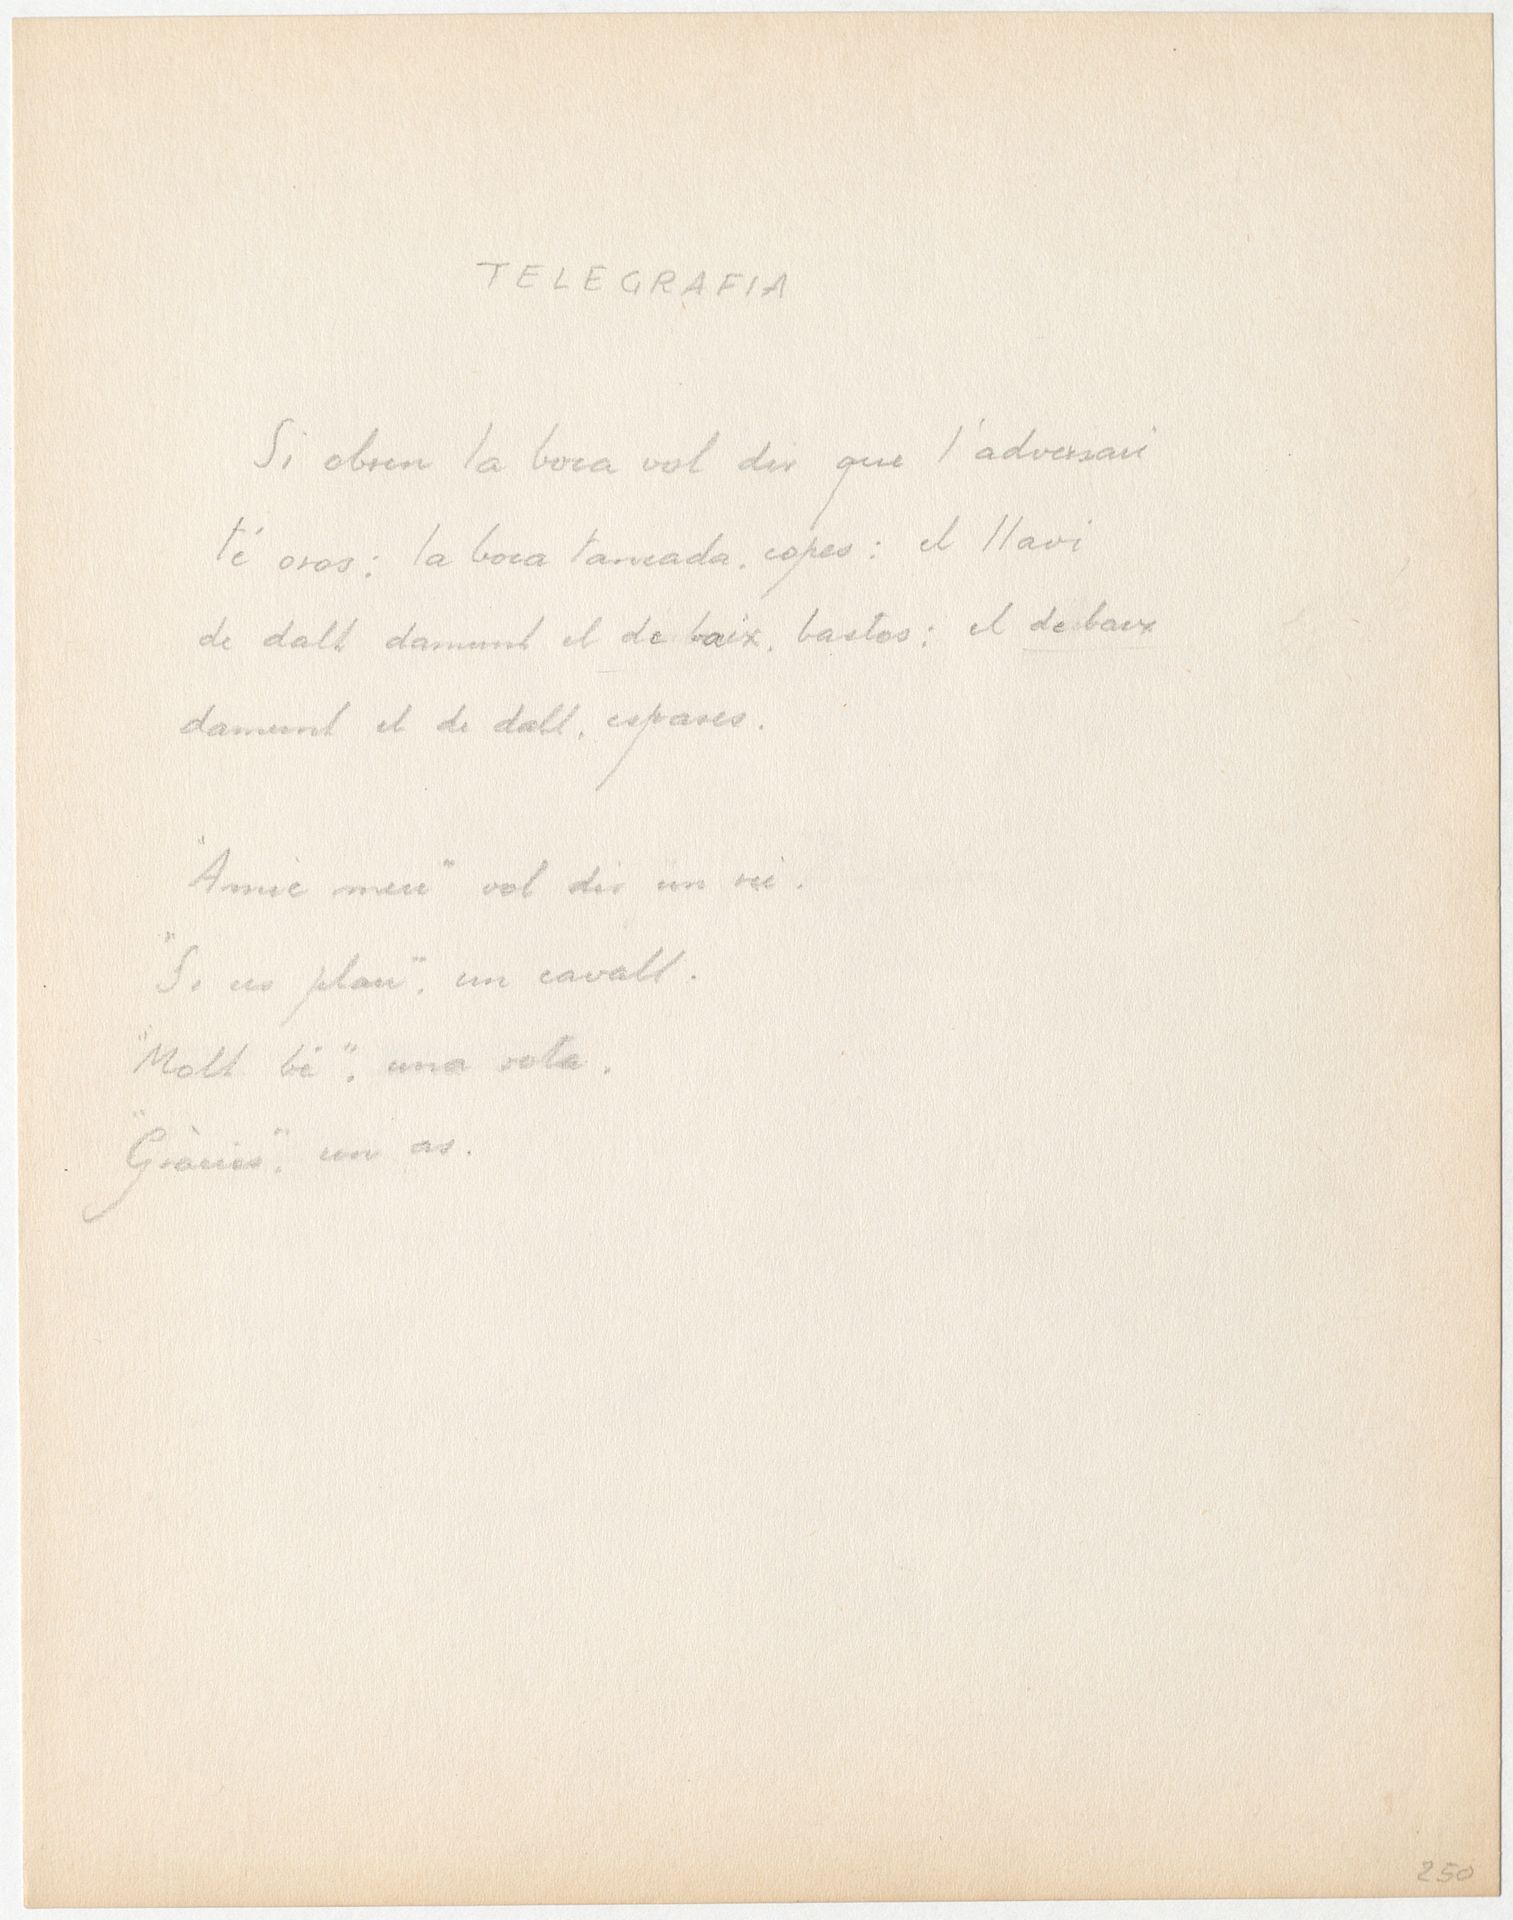 TELEGRAFIA
Si obren la boca vol dir que l'adversari
té oros; la boca tancada, copes; el llavi
de dalt damunt el de baix, bastos; el de baix
damunt el de dalt, espases.
"Amic meu" vol dir un rei.
"Si us plau", un cavall.
"Molt bé", una sota.
"Gràcies", un as.
250